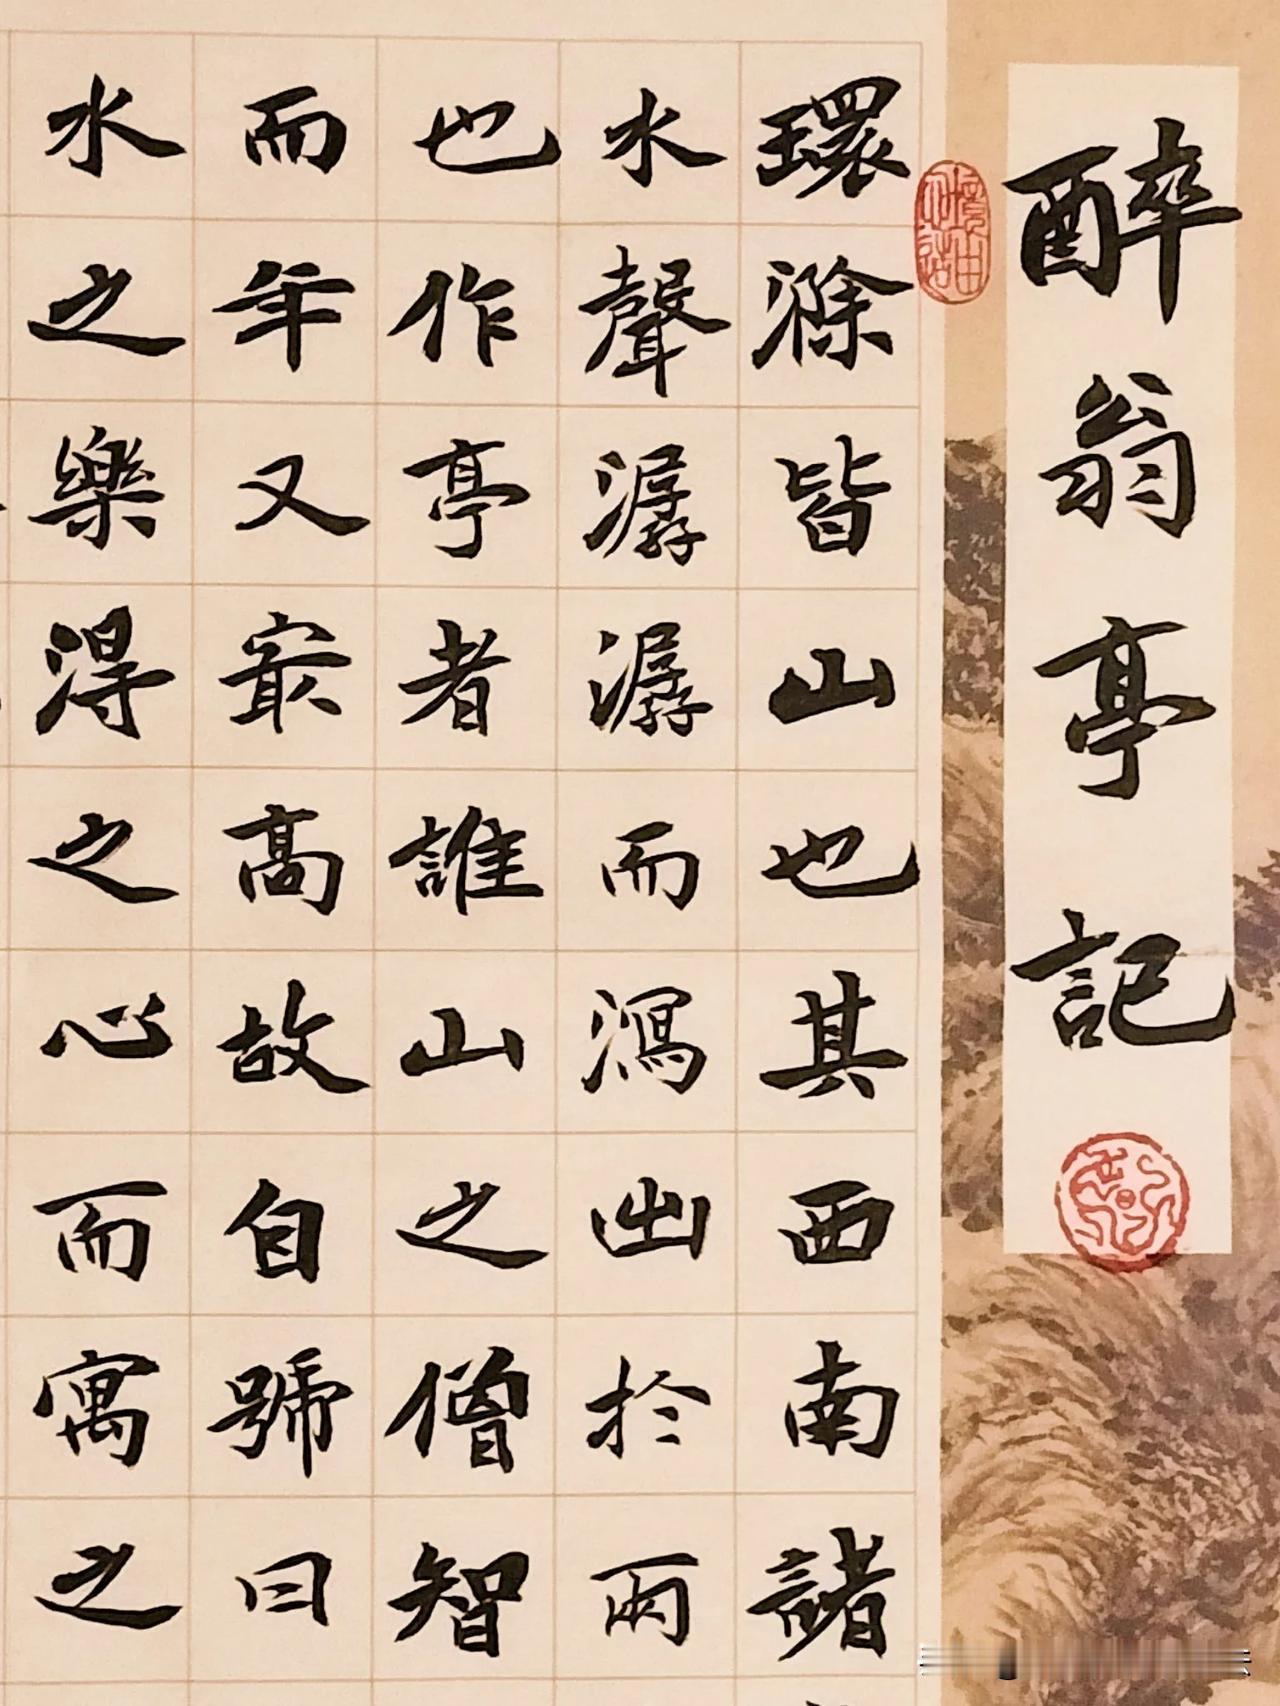 醉翁亭記
環滁皆山也其西南諸
水聲潺潺而瀉出於兩
也作亭者誰山之僧智
而年又最高故自號曰
水之樂得之心而寓之